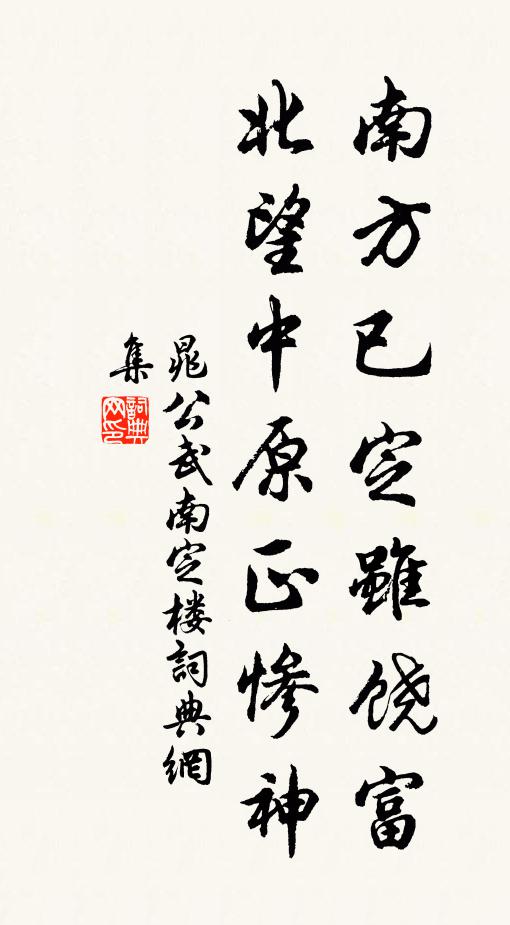 南方已定雖饶富
北望中原正惨神
晁公武南定楼詞典網
集
詞典
网印